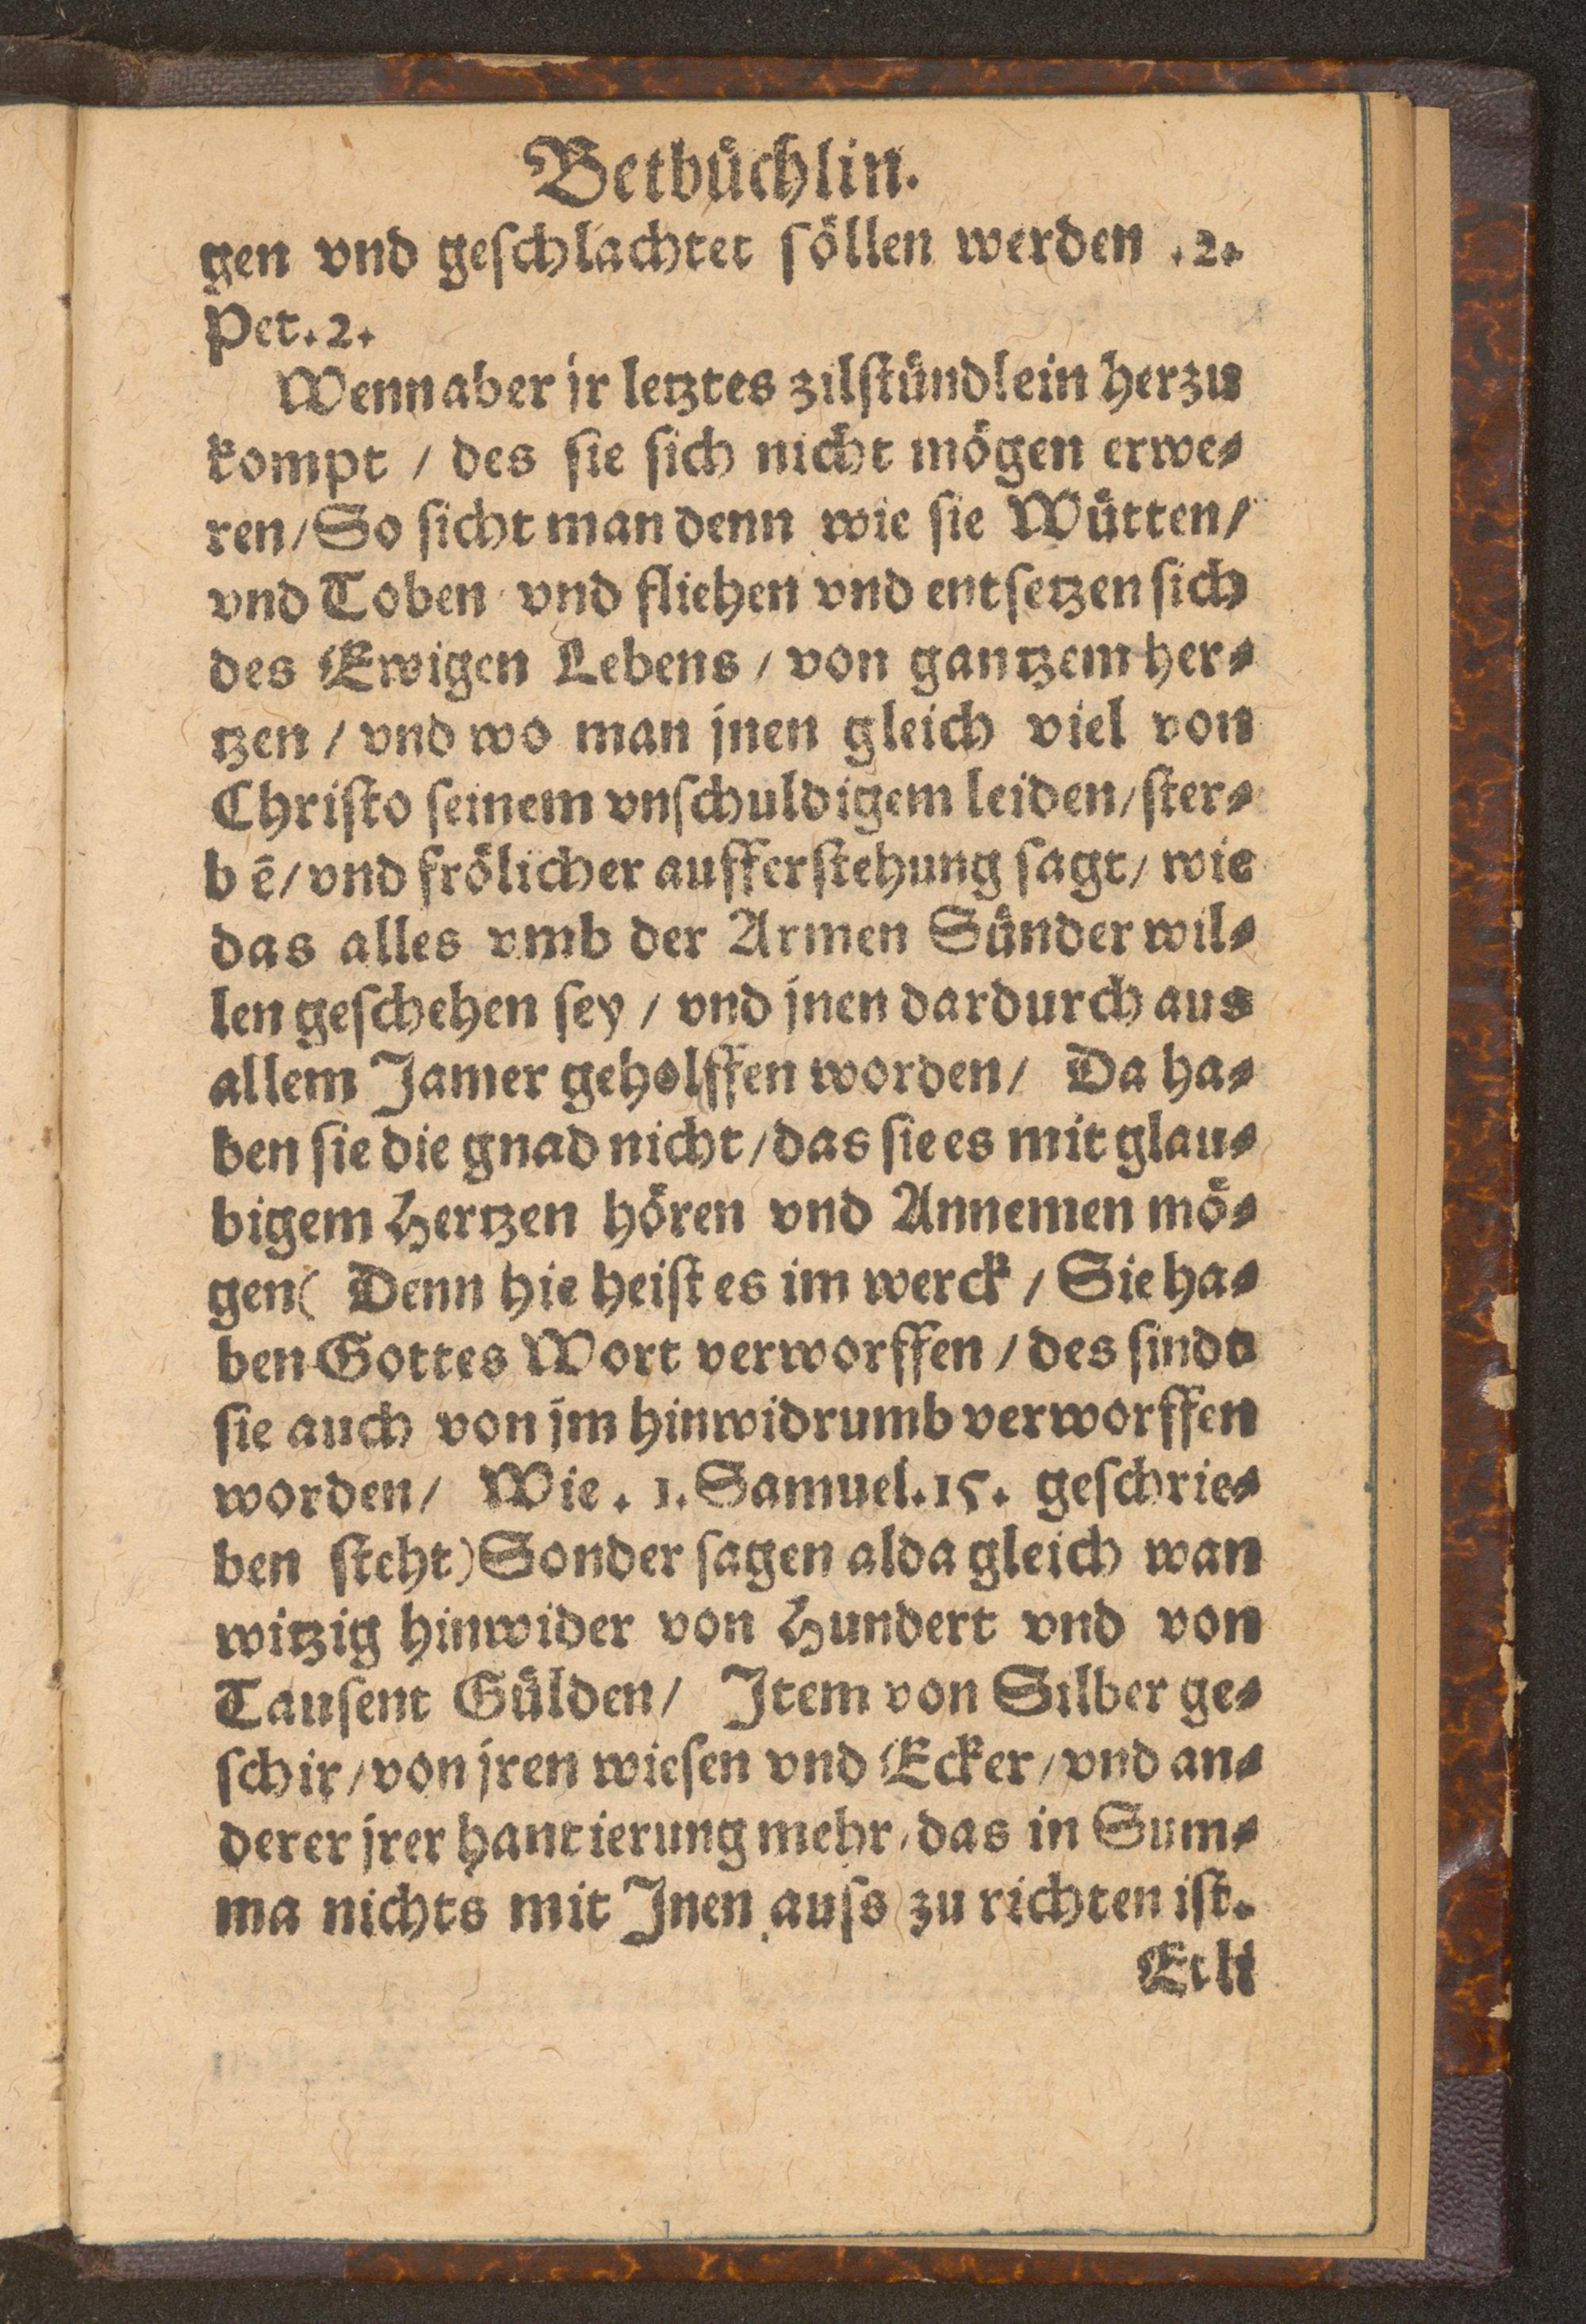 Betbůchlin.
gen vnd geſchlachtet ſöllen werden .2.
Pet.2.
Wenn aber jr letztes zilſtůndlein herzu
kompt / des ſie ſich nicht mögen erwe⸗
ren/ So ſicht man denn wie ſie Wůtten/
vnd Toben vnd fliehen vnd entſetzen ſich
des Ewigen Lebens / von gantzem her⸗
tzen / vnd wo man jnen gleich viel von
Chriſto ſeinem vnſchuldigem leiden/ ſter⸗
bē/ vnd frölicher aufferſtehung ſagt/ wie
das alles vmb der Armen Sůnder wil⸗
len geſchehen ſey / vnd jnen dardurch aus
allem Jamer geholffen worden/ Da ha⸗
ben ſie die gnad nicht / das ſie es mit glau⸗
bigem Hertzen hören vnd Annemen mö⸗
gen( Denn hie heiſt es im werck / Sie ha⸗
ben Gottes Wort verworffen / des ſindt
ſie auch von jm hinwidrumb verworffen
worden/ Wie . 1. Samuel.15. geſchrie⸗
ben ſteht) Sonder ſagen alda gleich wan
witzig hinwider von Hundert vnd von
Tauſent Gůlden/ Item von Silber ge⸗
ſchir / von jren wieſen vnd Ecker / vnd an⸗
derer jrer hantierung mehr / das in Sum⸗
ma nichts mit Jnen auſs zu richten iſt.
Etli